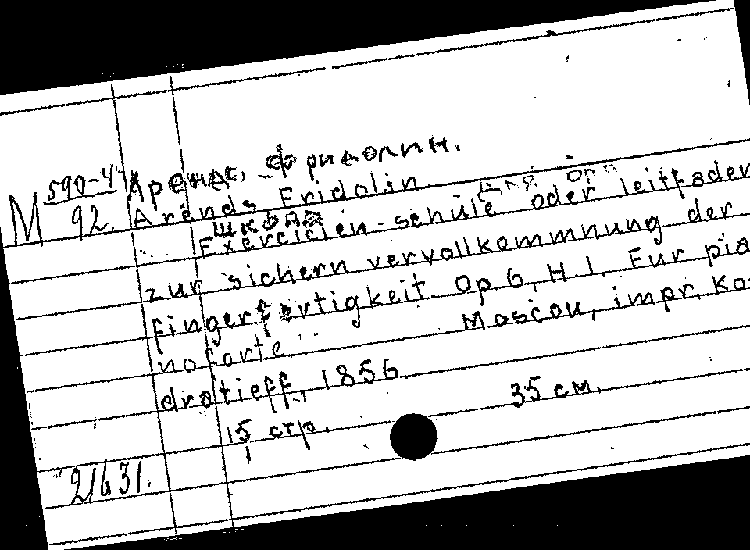 М 590-4
92
Арендс, Фридолин.
Arends Fridolin
Школа для фп
Exercicien-schule oder leitfaden
zur sichern vervollkommnung der
fingerfertigkeit Op 6, H 1. Fur pia
noforte Moscou, impr. Ko
dratieff, 1856
15 стр. 35 см.
21631.